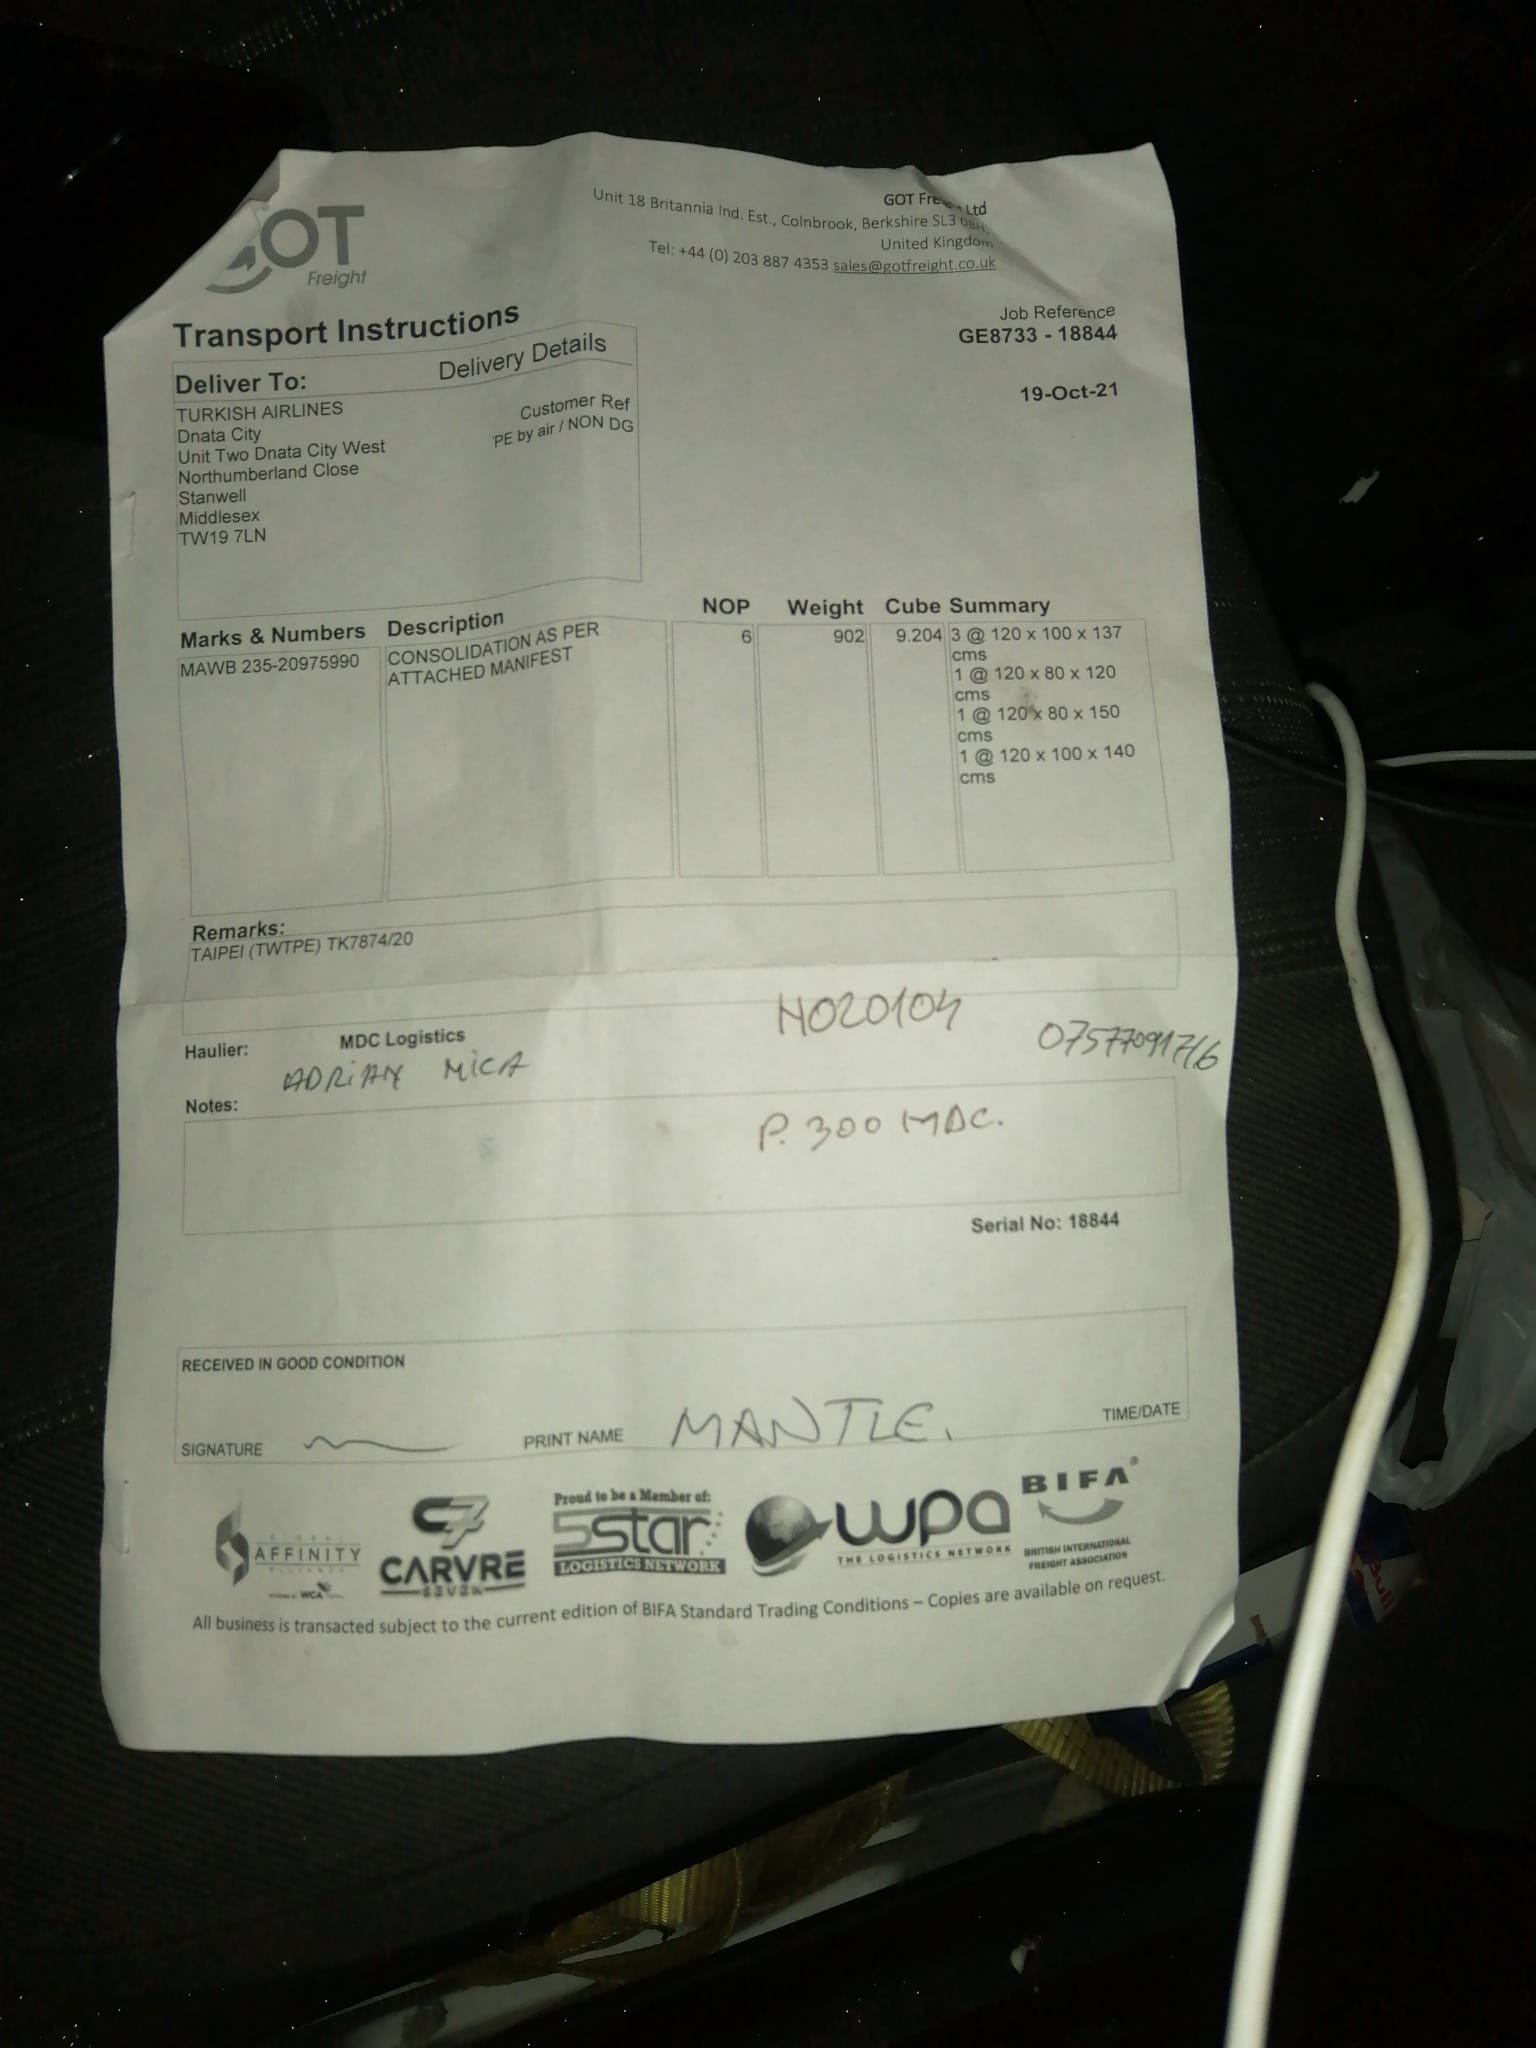 GOT
Freight
GOT Ltd
Unit 18 Britannia Ind. Est., Colnbrook, Berkshire SL3
United Kingdom
Tel: +44 (0) 203 887 4353 sales@gotfreight.co.uk
Transport Instructions
Job Reference
GE8733 - 18844
19-Oct-21
Deliver To: Delivery Details
TURKISH AIRLINES Customer Ref
Dnata City PE by air / NON DG
Unit Two Dnata City West
Northumberland Close
Stanwell
Middlesex
TW19 7LN
Marks & Numbers Description NOP Weight Cube Summary
MAWB 235-20975990 CONSOLIDATION AS PER 6 902 9.204 3 @ 120 x 100 x 137
ATTACHED MANIFEST cms
1 @ 120 x 80 x 120
cms
1 @ 120 x 80 x 150
cms
1 @ 120 x 100 x 140
cms
Remarks:
TAIPEI (TWTPE) TK7874/20
Haulier: MDC Logistics
ADRIAN MICA
Notes:
P. 300 MDC.
Serial No: 18844
RECEIVED IN GOOD CONDITION
SIGNATURE PRINT NAME MANTLE. TIME/DATE
GLOBAL
AFFINITY
ALLIANCE
WCA
C7
CARVRE
SEVEN
Proud to be a Member of:
5star
LOGISTICS NETWORK
wpa
THE LOGISTICS NETWORK
BIFA®
BRITISH INTERNATIONAL
FREIGHT ASSOCIATION
All business is transacted subject to the current edition of BIFA Standard Trading Conditions – Copies are available on request.
Bull